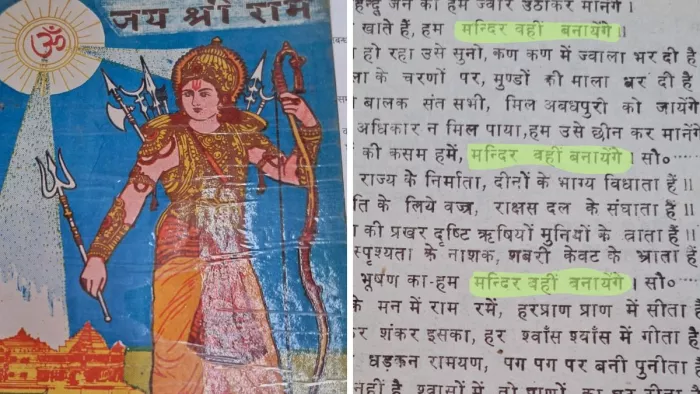 जय श्री राम
ॐ
हिन्दू जन का हम ज्वार उठाकर मानेंगे ।
खाते हैं, हम मन्दिर वहीं बनायेंगे ।।
हो रहा उसे सुनो, कण कण में ज्वाला भर दी है
के चरणों पर, मुण्डों की माला भर दी है
बालक संत सभी, मिल अवधपुरी को जायेंगे
अधिकार न मिल पाया,हम उसे छीन कर मानेंगे
की कसम हमें, मन्दिर वहीं बनायेंगे । सौ०....
राज्य के निर्माता, दीनों के भाग्य विधाता हैं ।।
के लिये वज्र, राक्षस दल के संघाता हैं ।।
की प्रखर दृष्टि ऋषियों मुनियों के त्राता हैं ।।
स्पृश्यता के नाशक, शबरी केवट के भ्राता हैं
भूषण का-हम मन्दिर वहीं बनायेंगे । सौ०....
के मन में राम रमें, हरप्राण प्राण में सीता है
शंकर इसका, हर श्वाँस श्वाँस में गीता है
धड़कन रामयण, पग पग पर बनी पुनीता है
नहीं है श्वासों में तो प्राणों का घट रीता है